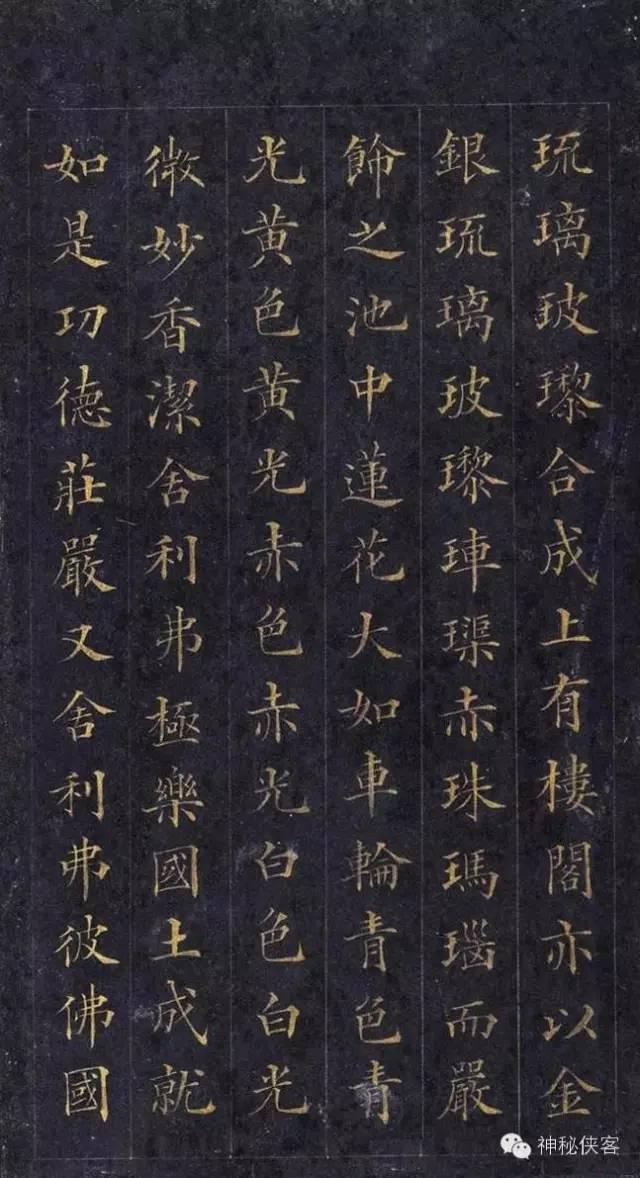 琉璃玻瓈合成上有樓閣亦以金
銀琉璃玻瓈硨璖赤珠瑪瑙而嚴
飾之池中蓮花大如車輪青色青
光黄色黄光赤色赤光白色白光
微妙香潔舍利弗極樂國土成就
如是功德莊嚴又舍利弗彼佛國
神秘侠客